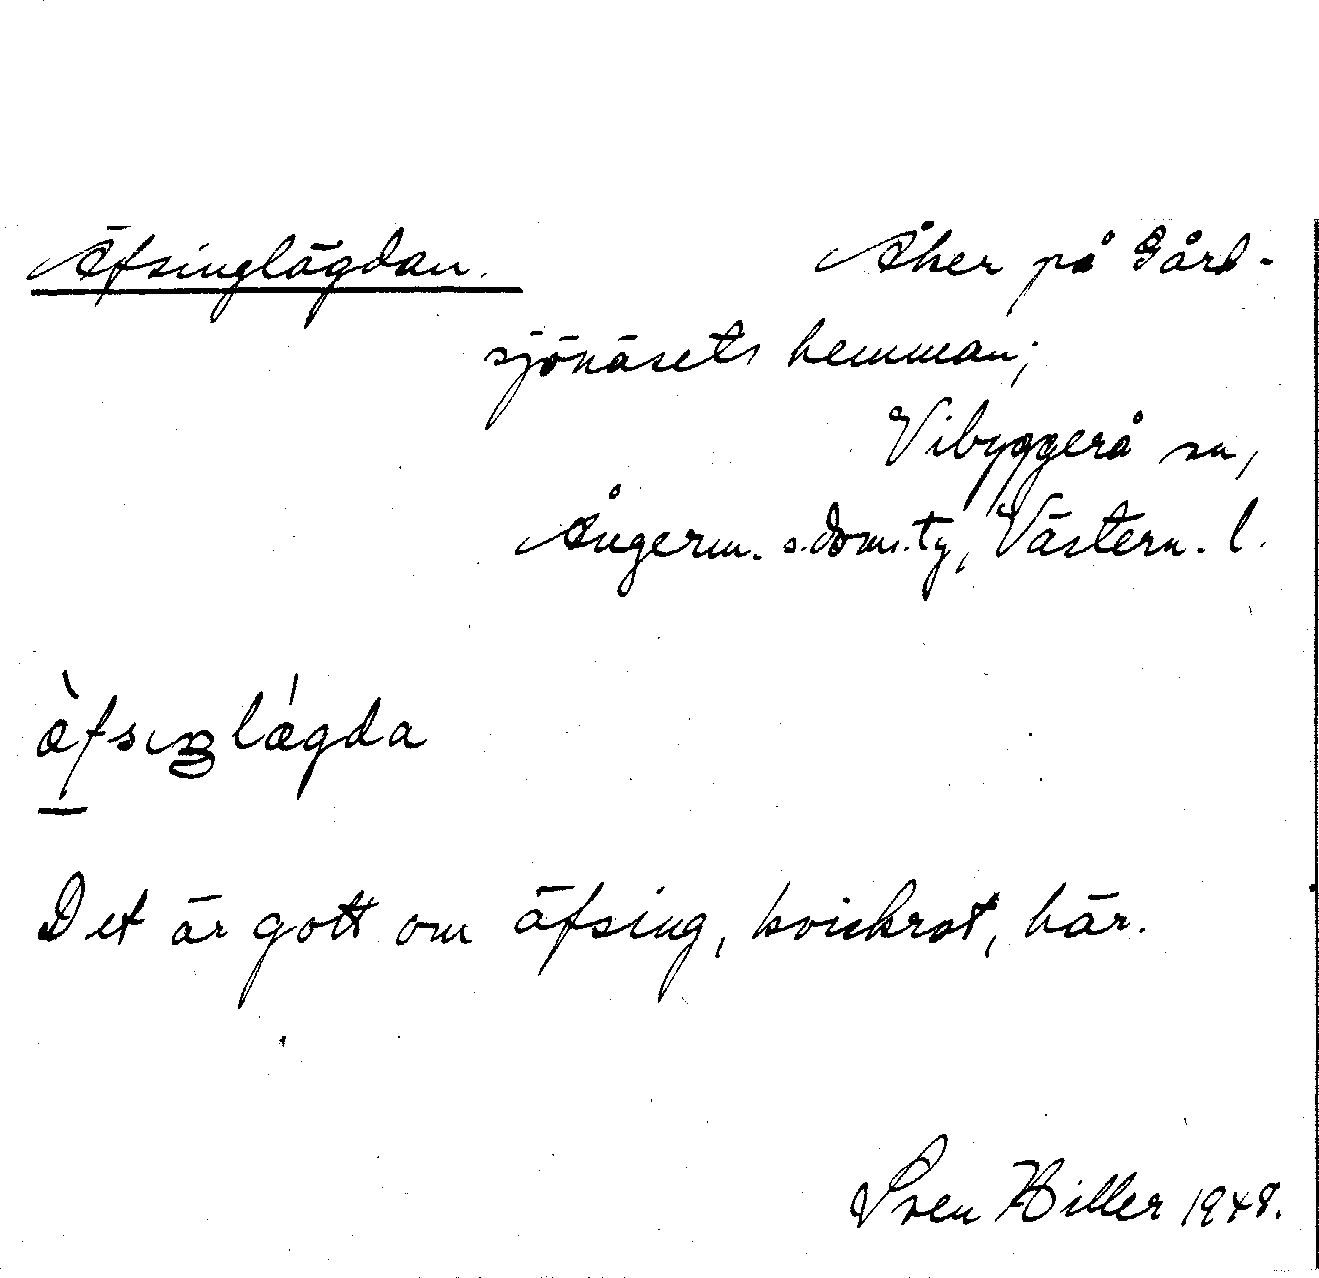 Äfsinglägdan. Åker på Gård-
sjönäsets hemman;
Vibyggerå sn,
Ångerm. s. doms. ty, Västern. l.
æ̀fsıŋlǽgda
Det är gott om äfsing, kvickrot, här.
Sven Hiller 1948.